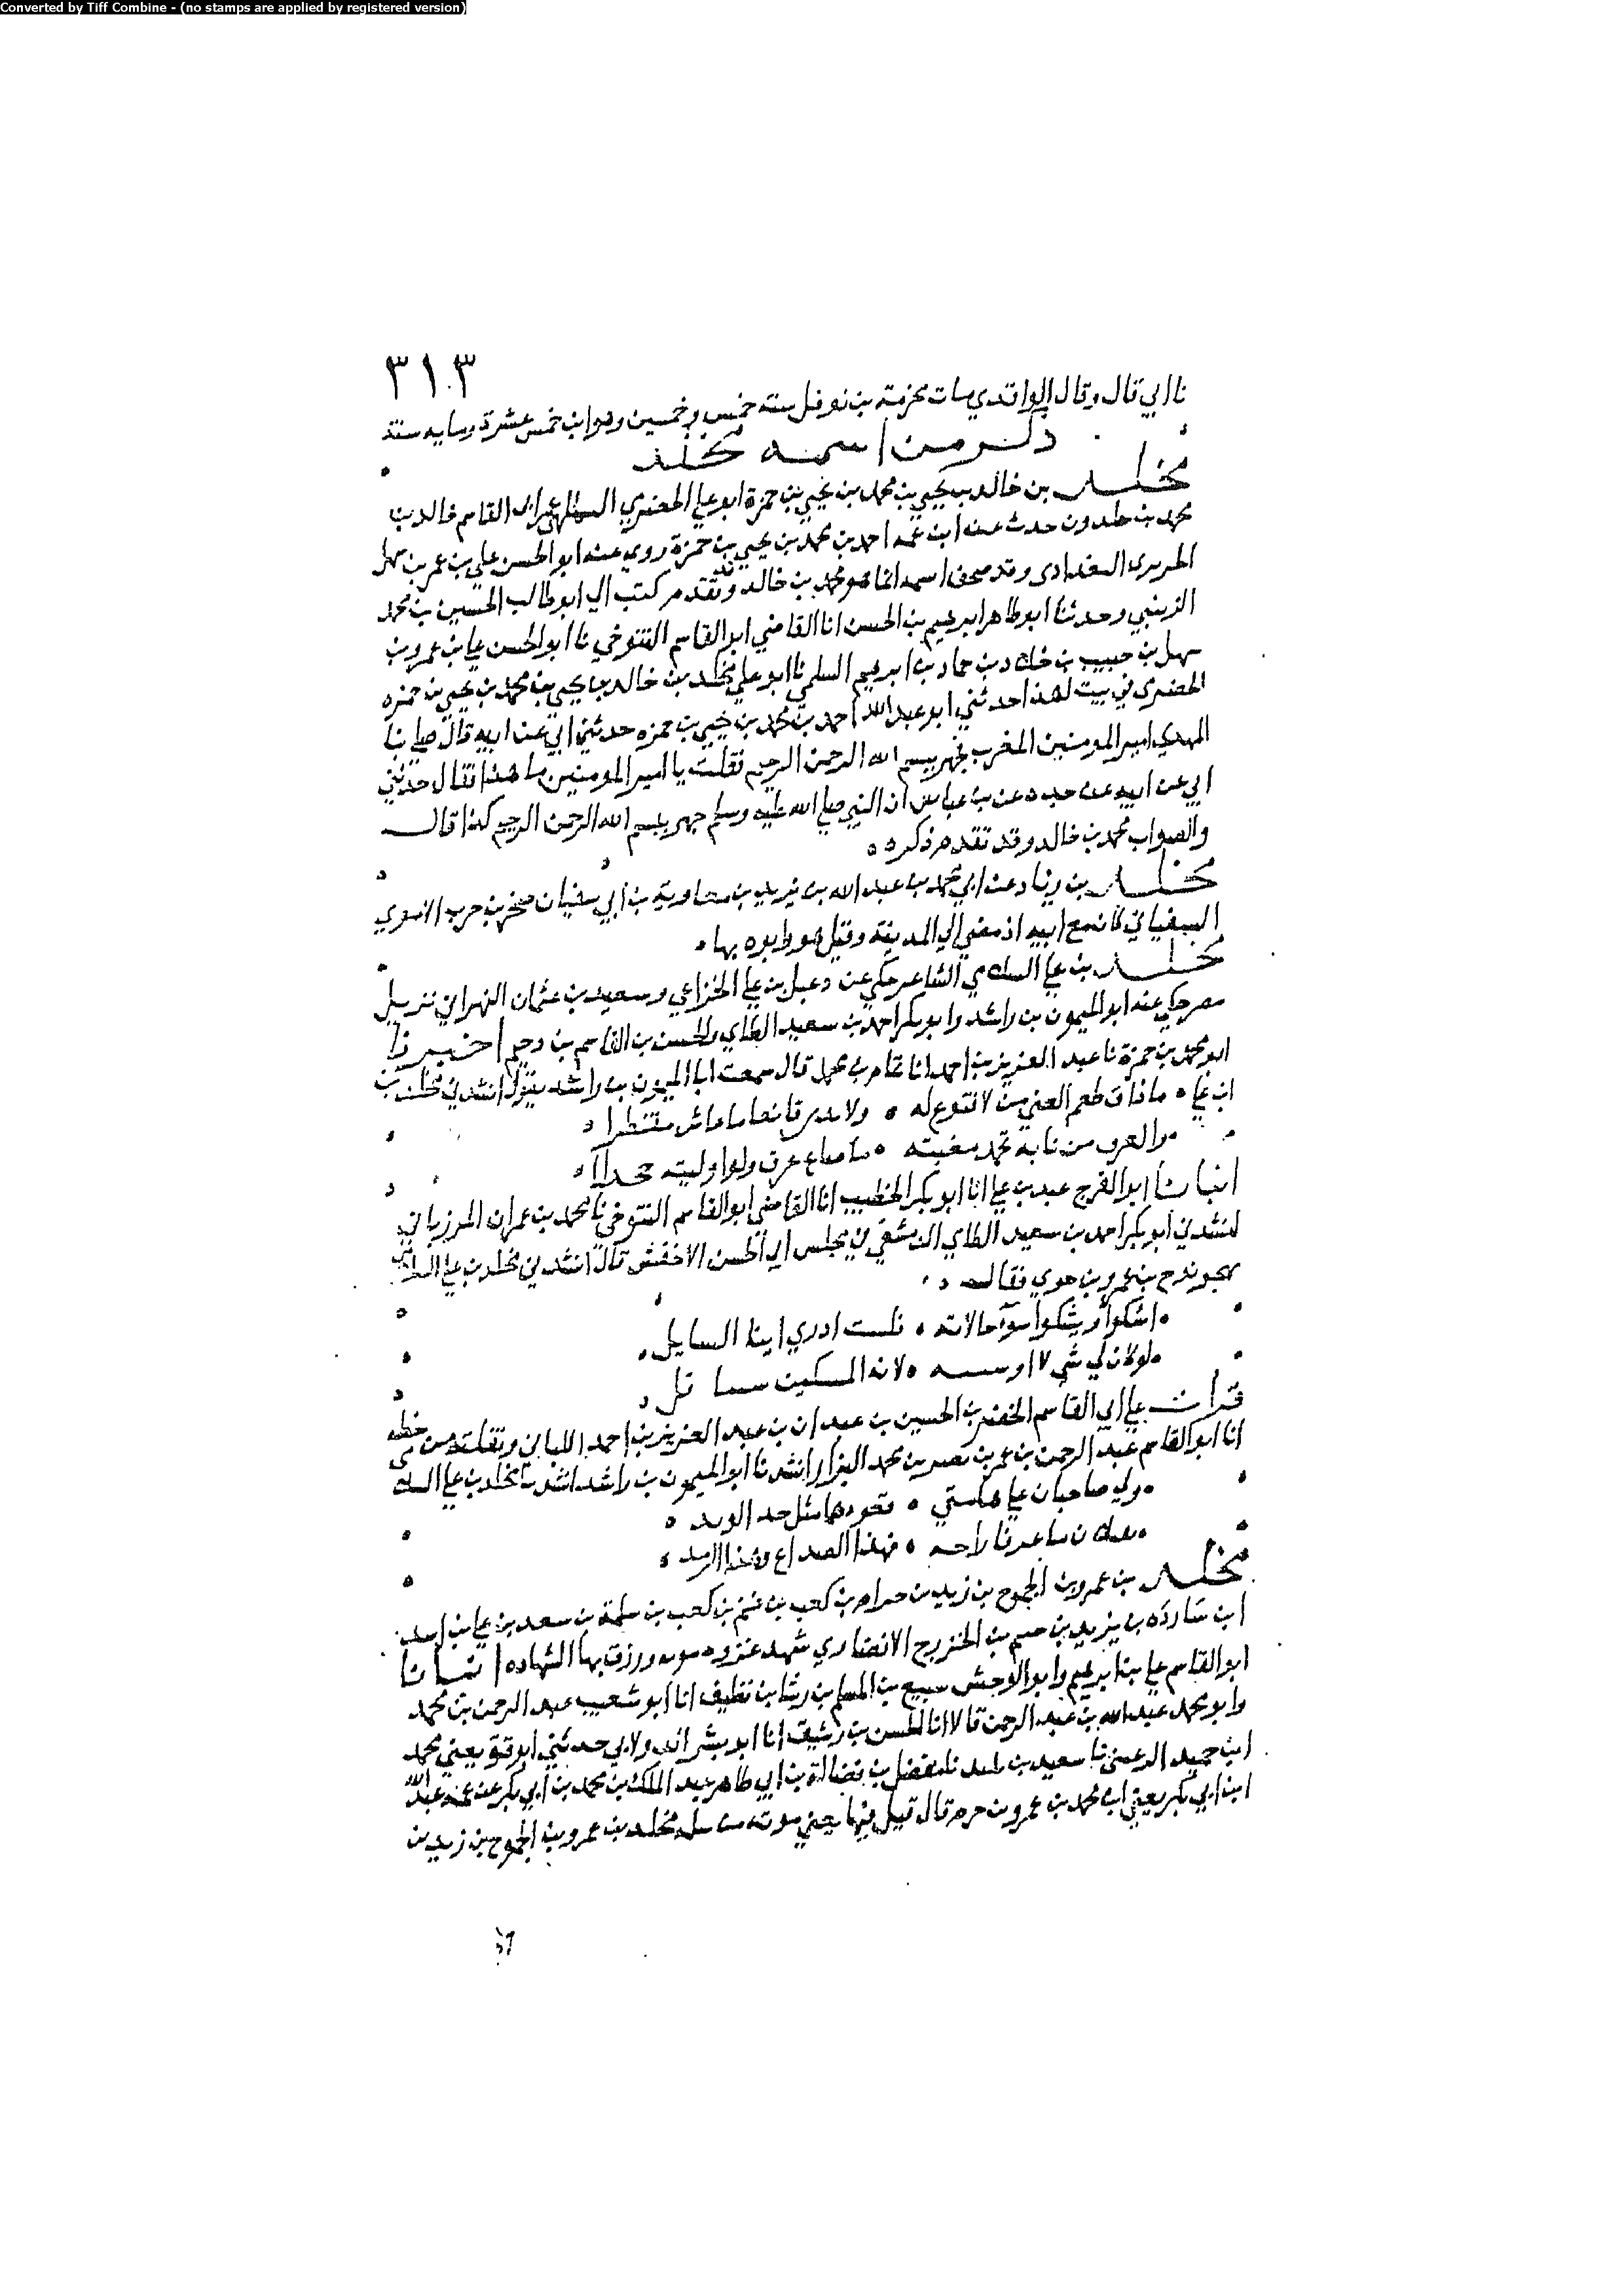 Converted by Tiff Combine - (no stamps are applied by registered version)
٣١٣
نا ابي قال وقال الواقدي مات مخرمة بن نوفل سنة خمس وخمسين وهو ابن خمس عشرة ومايه سنة
ذكر من اسمه مخلد
مخلد بن خالد بن يحيي بن محمد بن يحيي بن حمزة ابو علي الحضري ابي القاسم خالد بن
محمد بن خلدون حدث عن ابن عمه احمد بن محمد بن يحيي بن حمزة روي عنه ابو الحسن علي بن عمر بن سهل
الحريري البغدادى وقد صحف اسمه انما هو محمد بن خالد وقد تقدم كتب الي ابو طالب الحسين بن محمد
الزينبي وحدثنا ابو طاهر ابرهيم بن الحسن انا القاضي ابو القاسم التنوخي نا ابو الحسن علي بن عمرو بن
سهل بن حبيب بن خلاد بن حماد بن ابرهيم السلمي نا ابو علي مخلد بن خالد بن يحيي بن محمد بن يحيي بن حمزه
الحضرى في بيت لهذا حدثني ابو عبد الله احمد بن محمد بن يحيي بن حمزه حدثني ابي عن ابيه قال صلي بنا
المهدي امير المومنين المغرب فجهر ببسم الله الرحمن الرحيم فقلت يا امير المومنين ما هذا فقال حدثني
ابي عن ابيه عن جده عن بن عباس ان النبي صلي الله عليه وسلم جهر ببسم الله الرحمن الرحيم كذا قال
والصواب محمد بن خالد وقد تقدم ذكره
مخلد بن زياد عن ابي محمد بن عبد الله بن يزيد بن معاوية بن ابي سفيان صخر بن حرب الاموي
السفياني كان مع ابيه اذ مضي الي المدينة وقتل هو وابوه بها
مخلد بن علي السلامي الشاعر حكي عن دعبل بن علي الخزاعي وسعيد بن عثمان النهراني نزيل
مصر حكي عنه ابو الميمون بن راشد وابو بكر احمد بن سعيد الطاي والحسن بن القاسم بن دحيم اخبرنا
ابو محمد بن حمزة نا عبد العزيز بن احمد انا تمام بن محمد قال سمعت ابا الميمون بن راشد يقول انشدني مخلد بن
علي ما ذاق طعم الغني من لا قنوع له ولا ترى قانعا ما عاش مفتقرا
والعرف من ياته تحمد مغبته ما ضاع عرف ولو اوليته حجرا
انبانا ابو الفرج غيث بن علي انا ابو بكر الخطيب انا القاضي ابو القاسم التنوخي نا محمد بن عمران المرزباني
انشدني ابو بكر احمد بن سعيد الطاي الدمشقي في مجلس ابي الحسن الاخفش قال انشدني مخلد بن علي
يهجو نوح بن عمرو بن حوي فقال
اشكوا ويشكوا سوء حالاته فلست ادري اينا السايل
قرات علي ابي القاسم الخضر بن الحسين بن عبدان بن عبد العزيز بن احمد ونقلته من خطه
انا ابو القاسم عبد الرحمن بن عمر بن نصر بن محمد البزار انشدنا ابو الميمون بن راشد انشدنا مخلد بن علي
ولي صاحبان علي هامتي قعودهما مثل حد الوتد
فهذا الصداع وهذا الرمد
مخلد بن عمرو بن الجموح بن زيد بن حرام بن كعب بن غنم بن كعب بن سلمة بن سعد بن علي بن اسد
ابن ساردة بن يزيد بن جشم بن الخزرج الانصاري شهد غزوه موته ورزق بها الشهاده انبانا
ابو القاسم علي بن ابرهيم وابو الوحش سبيع بن المسلم بن رشا بن نظيف انا ابو شعيب عبد الرحمن بن محمد
وابو محمد عبد الله بن عبد الرحمن قالا انا الحسن بن رشيق انا ابو بشر الدولابي حدثني ابو قرة يعني محمد
ابن حميد الرعيني نا سعيد بن تليد نا مفضل بن فضالة بن ابي طاهر عبد الملك بن محمد بن ابي بكر عن عمه عبد الله
ابن ابي بكر يعني ابن محمد بن عمرو بن حزم قال قيل فيها يعني موته مخلد بن عمرو بن الجموح بن زيد بن